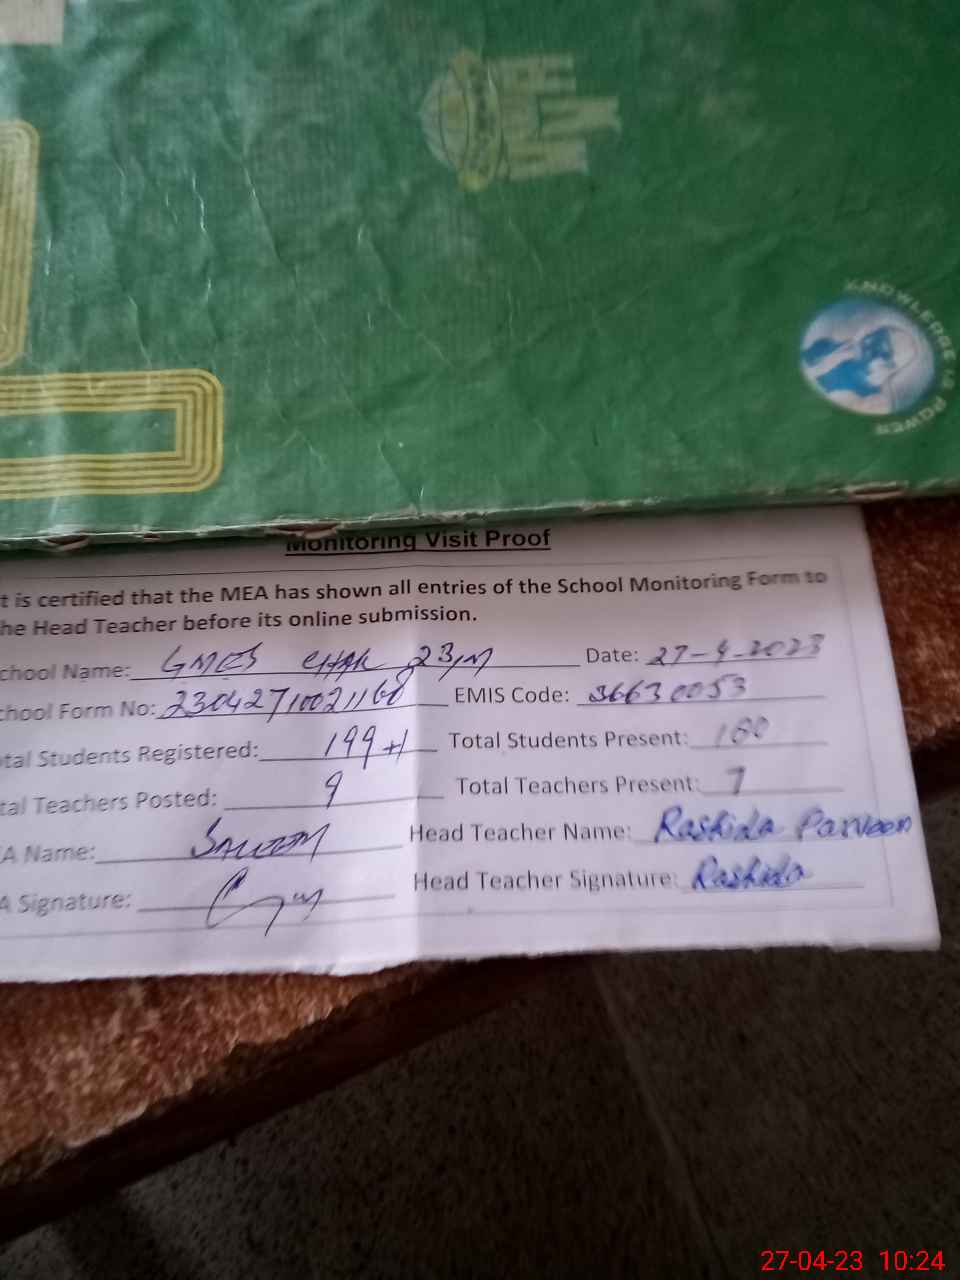 KNOWLEDGE IS POWER
Monitoring Visit Proof
t is certified that the MEA has shown all entries of the School Monitoring Form to
he Head Teacher before its online submission.
chool Name: GMES CHAK 23/M Date: 27-4-2023
chool Form No: 23042710021168 EMIS Code: 36630053
tal Students Registered: 199+1 Total Students Present: 180
tal Teachers Posted: 9 Total Teachers Present: 7
A Name: Saleem Head Teacher Name: Rashida Parveen
A Signature: Head Teacher Signature: Rashida
27-04-23 10:24